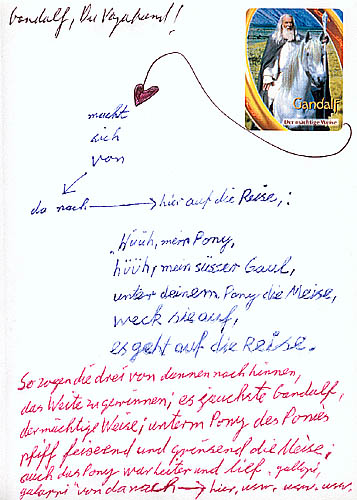 Gandalf, Du Vagabund!
Gandalf
Der mächtige Weise
macht
sich
von
da nach → hier auf die Reise,:
"Hüüh, mein Pony,
hüüh, mein süsser Gaul,
unter deinem Pony die Meise,
weck sie auf,
es geht auf die Reise.
So zogen die drei von dannen nach hinnen,
das Weite zu gewinnen; es jauchzte Gandalf,
der mächtige Weise; unterm Pony des Ponies
pfiff feixend und grinsend die Meise;
auch das Pony war heiter und lief, galopi,
galoppi von da nach → hier, usw. usw. usw.